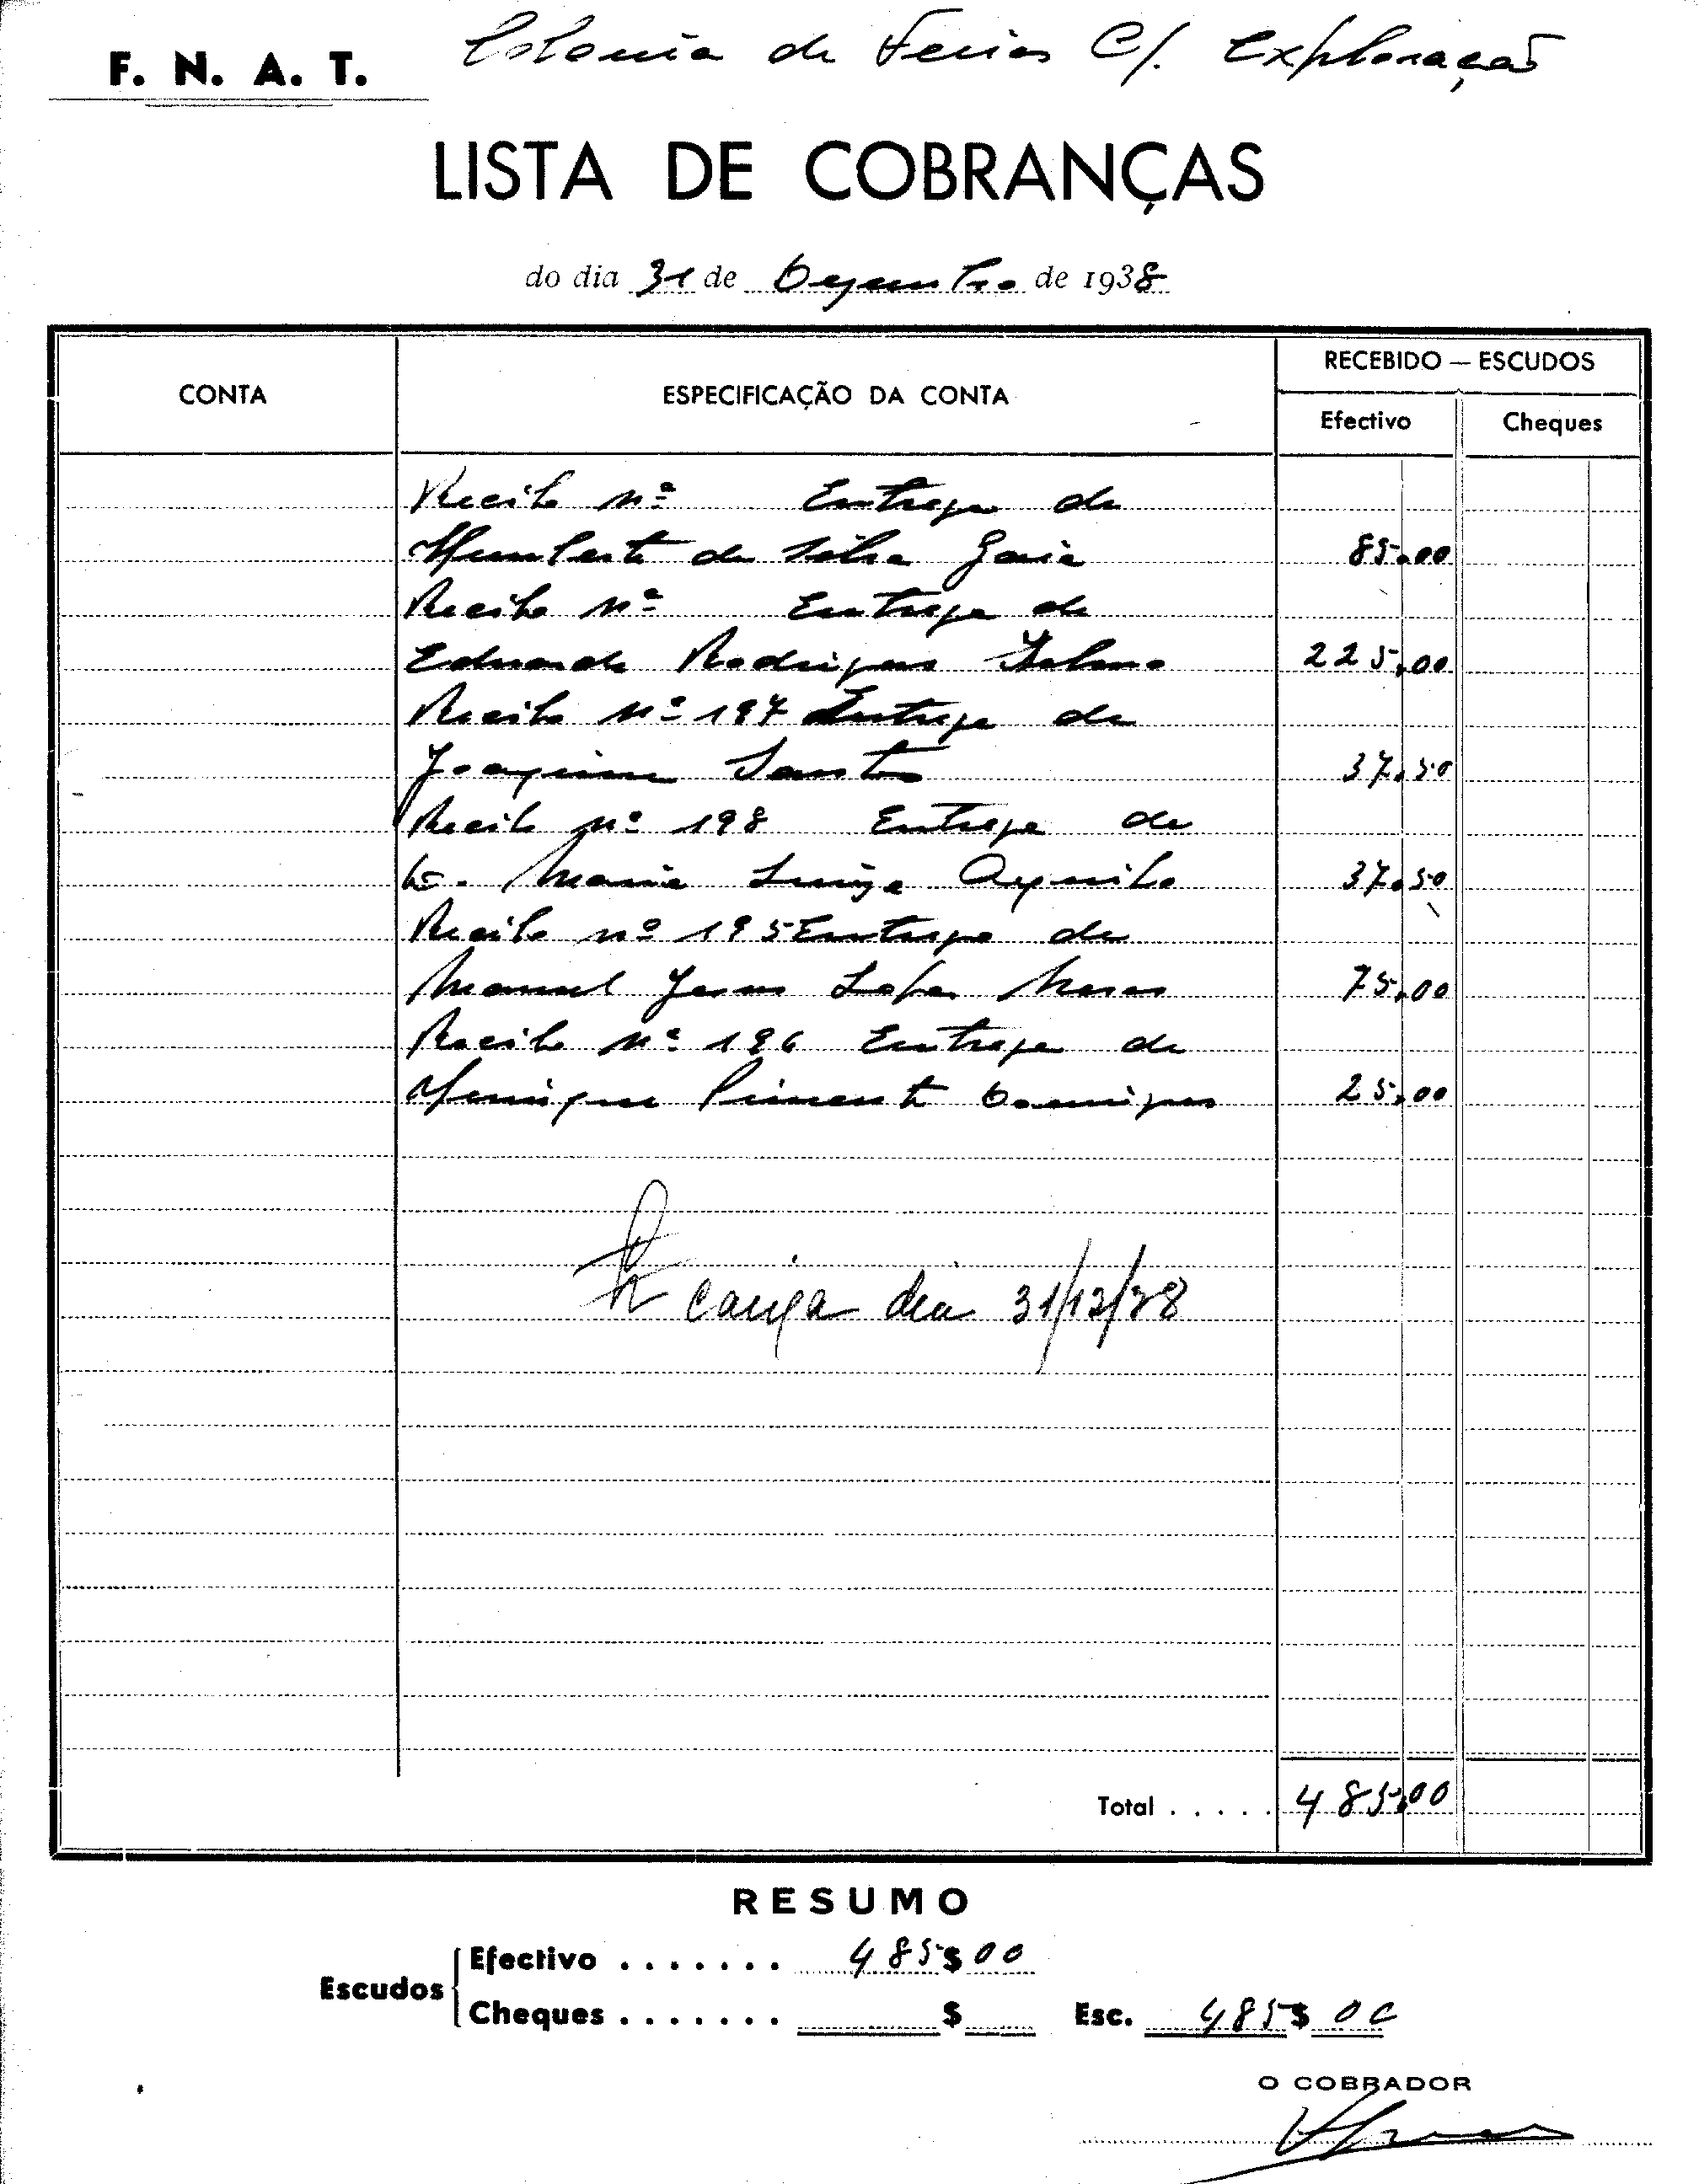 F. N. A. T. Colonia de Ferias C/. Exploração
LISTA DE COBRANÇAS
do dia 31 de Dezembro de 1938
CONTA
ESPECIFICAÇÃO DA CONTA
RECEBIDO — ESCUDOS
Efectivo
Cheques
Recibo nº Entrega de
Humberto da Silva 85.00
Recibo nº Entrega de
Eduardo Rodrigues 225,00
Recibo nº 197 Entrega de
Joaquim Santos 37.50
Recibo nº 198 Entrega de
D. Maria Luiza 37.50
Recibo nº 195 Entrega de
Manuel Jesus Lopes 75,00
Recibo nº 196 Entrega de
Henrique Pimenta 25,00
dia 31/12/38
Total . . . . . 485,00
RESUMO
Escudos
Efectivo . . . . . . . 485$00
Cheques . . . . . . . $ Esc. 485$00
O COBRADOR